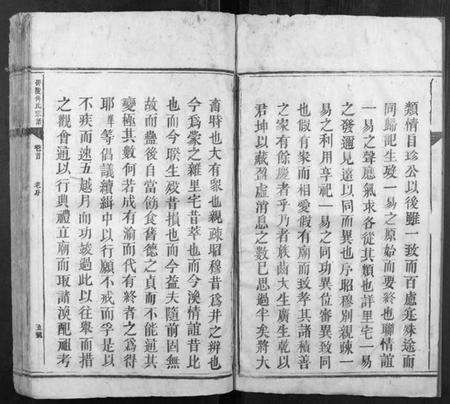 類情自珍公以後雖一致而百慮殊途而
同歸記生歿一易之原始而要終也聯情誼
一易之聲應氣求各從其類也詳里宅一易
之發遯見遠以同而異也序昭穆別親疎一
易之利用享祀一易之同功異位審異致同
也假有家而相愛假有廟而致孝其諸積善
之家有餘慶者乎乃者族齒大生廣生乾以
君坤以藏盈虛消息之數已思過半矣將大
畜時也大有眾也親疎昭穆昔為井之辨也
今為蒙之雜里宅昔萃也而今渙情誼昔比
也而今睽生歿昔損也而今益夫隨前固無
故而蠱後自當飭食舊德之貞而不能通其
變極其數何若成有渝而代有終者之為得
耶 等倡議續緝中以行願不戒而孚是以
不疾而速五越月而功竣過此以往舉而措
之觀會通以行典禮立廟而取諸渙配祖考
氏宗譜
卷首
老序